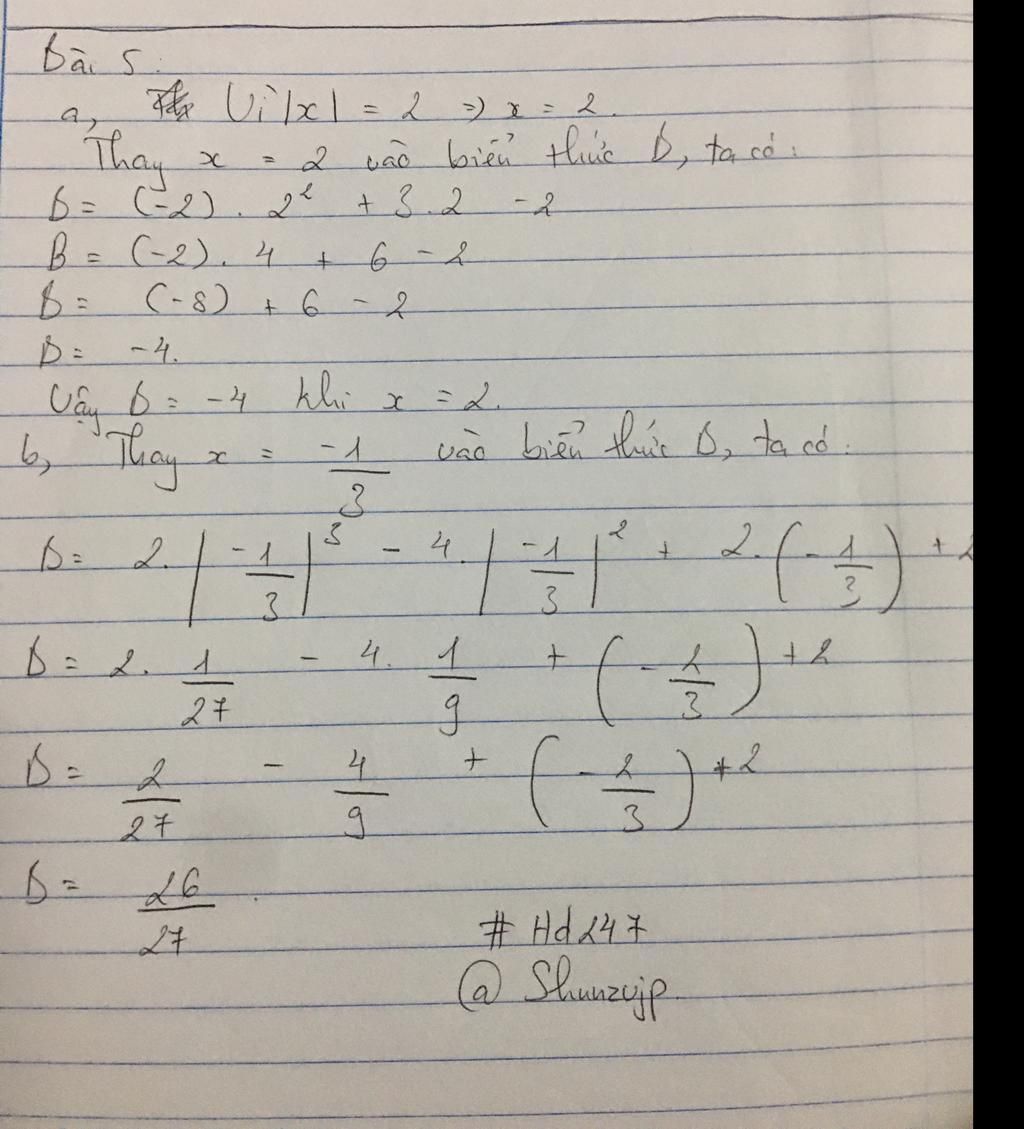 Bài 5.
a, Vì |x| = 2 => x = 2.
Thay x = 2 vào biểu thức B, ta có:
B = (-2). 2² + 3.2 - 2
B = (-2). 4 + 6 - 2
B = (-8) + 6 - 2
B = -4.
Vậy B = -4 khi x = 2.
b, Thay x = -1/3 vào biểu thức B, ta có:
B = 2.|-1/3|³ - 4.|-1/3|² + 2.(-1/3) + 2
B = 2. 1/27 - 4. 1/9 + (-2/3) + 2
B = 2/27 - 4/9 + (-2/3) + 2
B = 26/27.
# Hd247
@ Shunzujp.